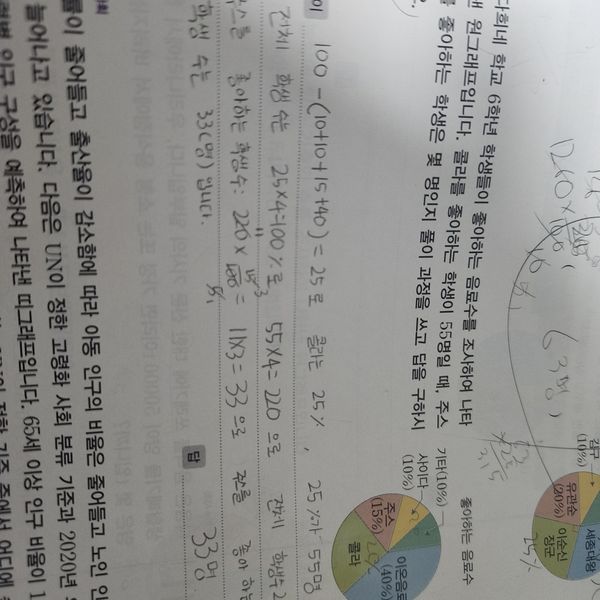 다희네 학교 6학년 학생들이 좋아하는 음료수를 조사하여 나타
낸 원그래프입니다. 콜라를 좋아하는 학생이 55명일 때, 주스
를 좋아하는 학생은 몇 명인지 풀이 과정을 쓰고 답을 구하시
좋아하는 음료수
기타(10%)
사이다
(10%)
주스
(15%)
콜라
이온음료
(40%)
김구
(10%)
유관순
(20%)
이순신
장군
세종대왕
25%
63명
100-(10+10+15+40)=25로 콜라는 25%, 25%가 55명
전체 학생 수는 25×4=100%로 55×4=220으로 전체 학생수
스를 좋아하는 학생수: 220× 15/100 = 11×3=33으로 주스를 좋아하는
학생 수는 33(명)입니다.
답 33명
률이 줄어들고 출산율이 감소함에 따라 아동 인구의 비율은 줄어들고 노인 인
늘어나고 있습니다. 다음은 UN이 정한 고령화 사회 분류 기준과 2020년
인구 구성을 예측하여 나타낸 띠그래프입니다. 65세 이상 인구 비율이 1